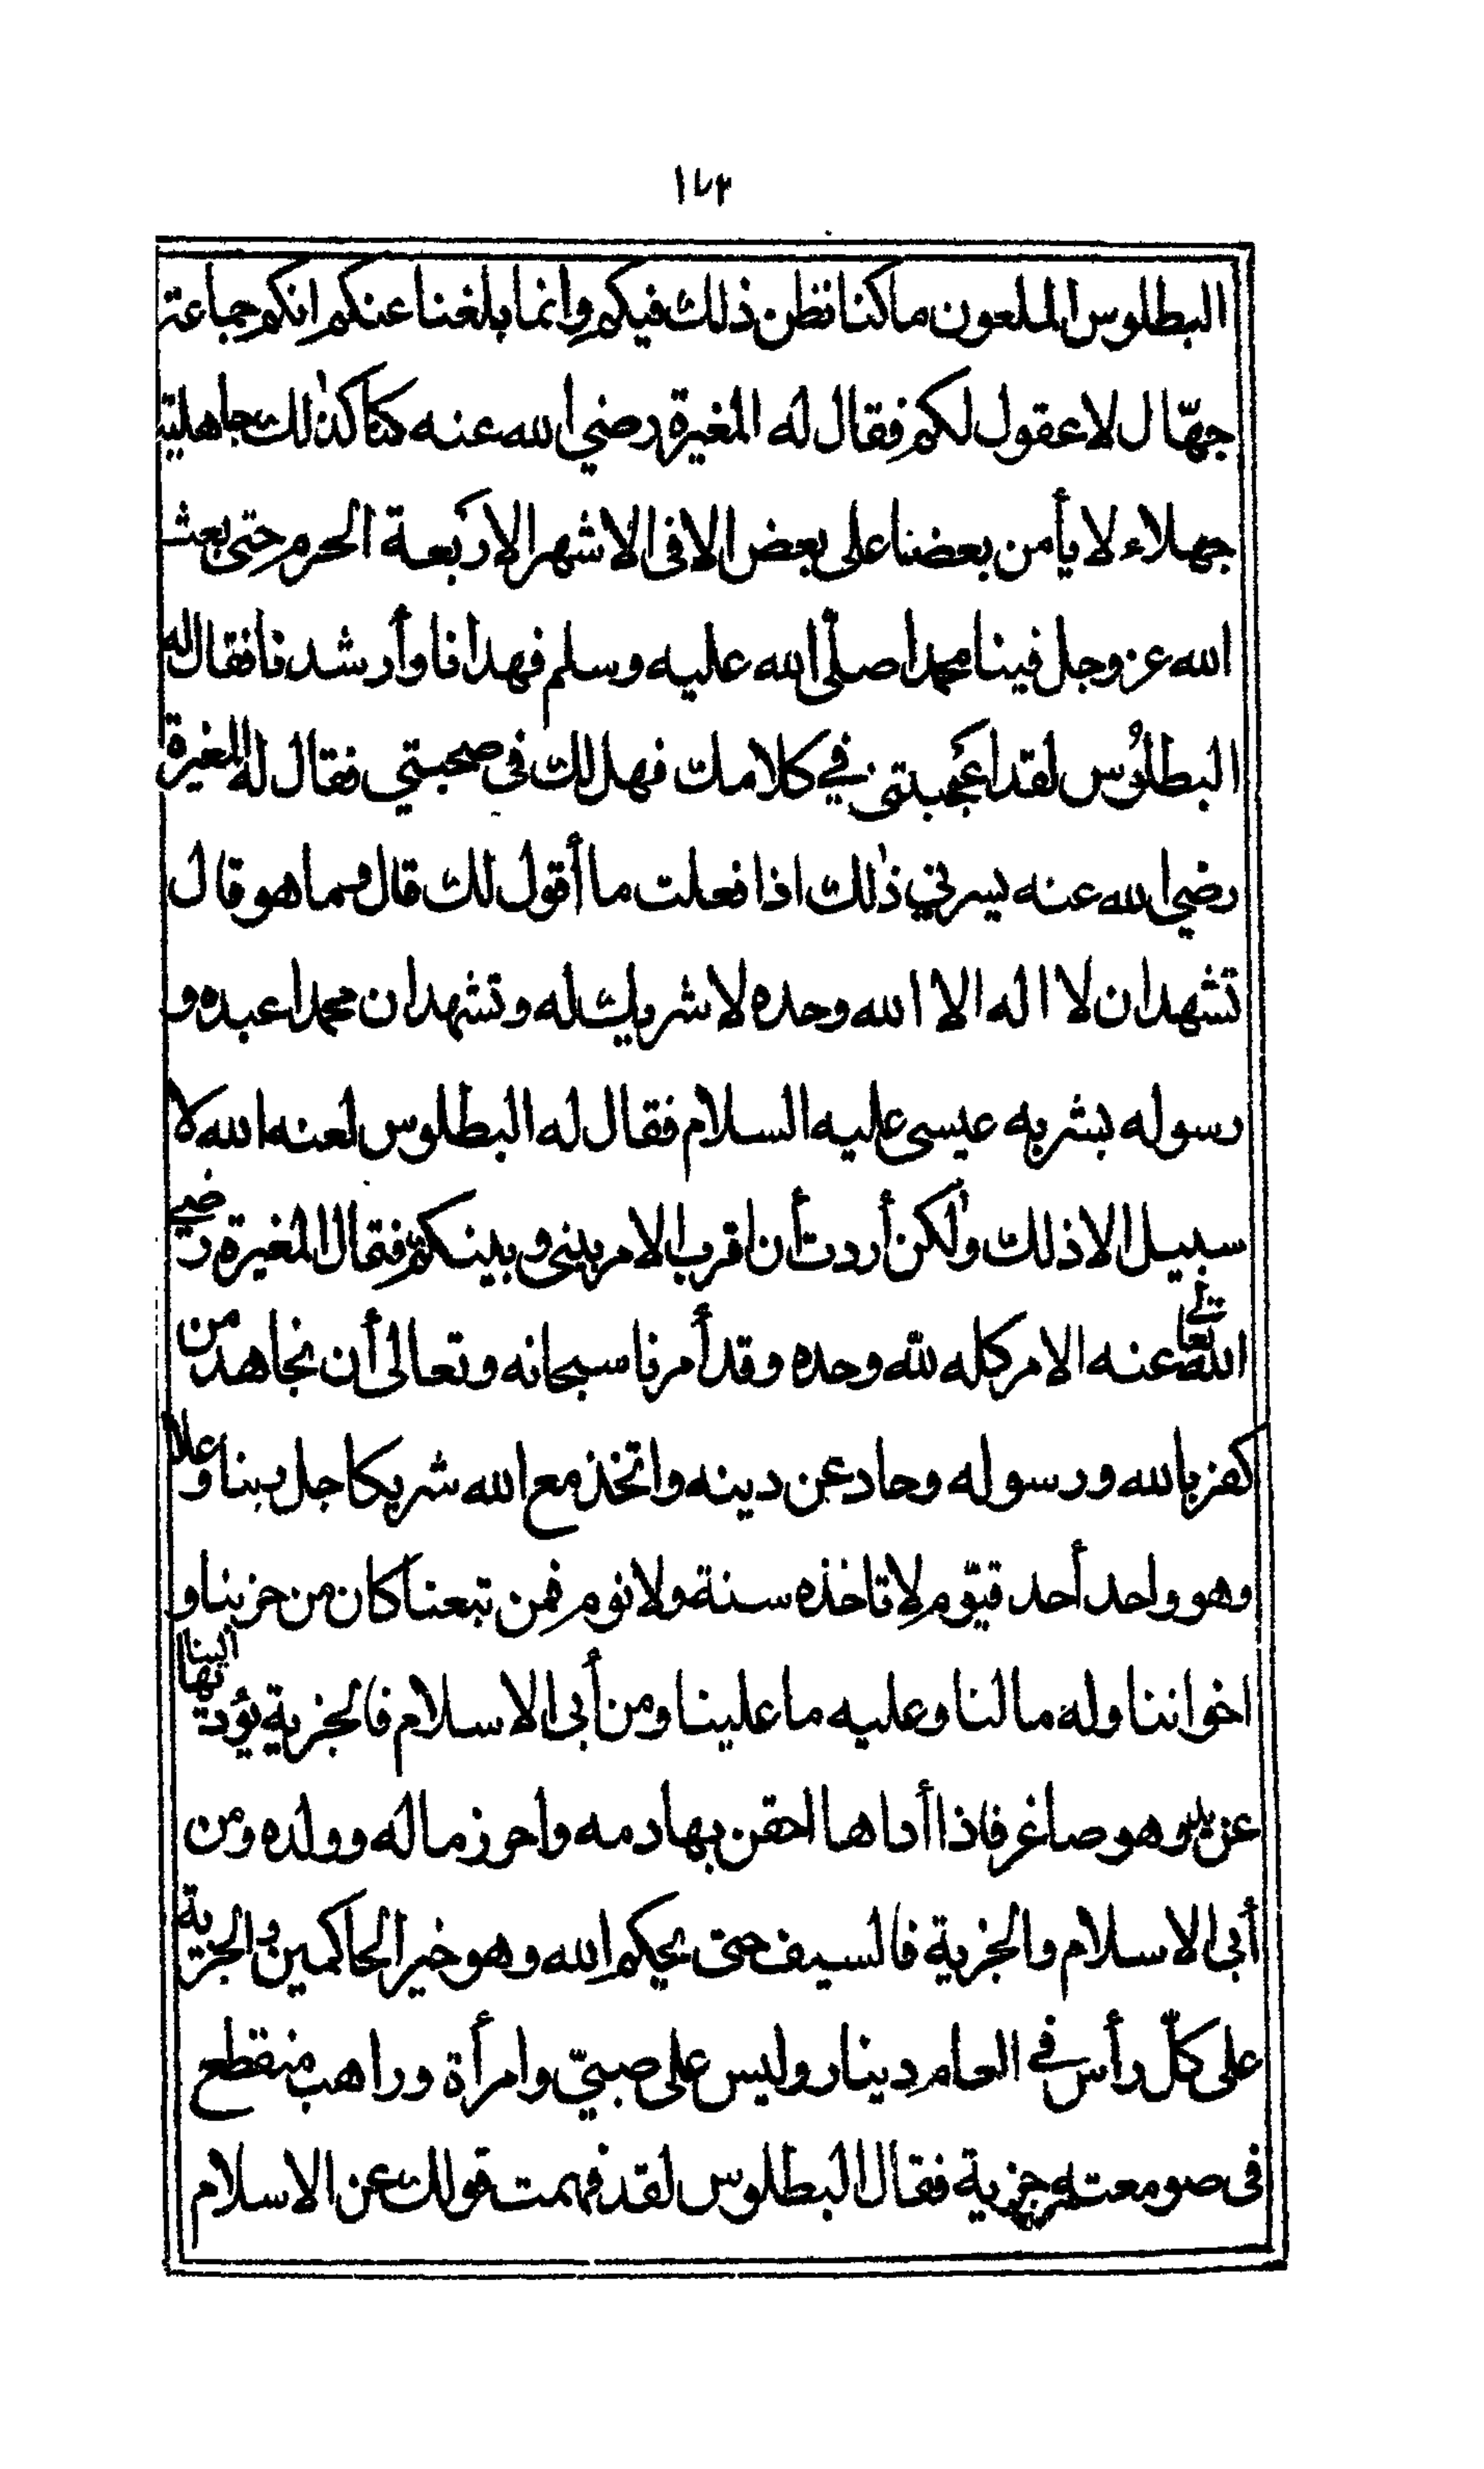 ١٧٣
البطلوس الملعون ماكنا نظن ذلك فيكم وانما بلغنا عنكم انكم جماعة
جهّال لا عقول لكم فقال له المغيرة رضي الله عنه كنا كذٰلك جاهلية
جهلاء لا يأمن بعضنا على بعض الا فى الاشهر الاربعة الحرم حتى بعث
الله عز وجل فينا محمدا صلّى الله عليه وسلم فهدانا وأرشدنا فقال له
البطلوُس لقد اعجبتنى في كلامك فهل لك فى صحبتي فقال له المغيرة
رضي الله عنه يسرني ذٰلك اذا فعلت ما أقول لك قال وما هو قال
تشهد ان لا اله الا الله وحده لا شريك له وتشهد ان محمدا عبده و
رسوله بشر به عيسى عليه السلام فقال له البطلوس لعنه الله لا
سبيل الا ذلك ولٰكن أردت أن اقرب الامر بينى وبينكم فقال المغيرة رضي
الله تعالى عنه الامر كله لله وحده وقد أمرنا سبحانه وتعالى أن نجاهد من
كفر بالله ورسوله وحاد عن دينه واتخذ مع الله شريكا جل ربنا وعلا
وهو واحد أحد قيّوم لا تاخذه سنة ولا نوم فمن تبعنا كان من حزبنا و
اخواننا وله ما لنا وعليه ما علينا ومن أبى الاسلام فالجزية يؤديها الينا
عن يد وهو صاغر فاذا أداها احقن بها دمه واحرز ماله وولده ومن
أبى الاسلام والجزية فالسيف حتى يحكم الله وهو خير الحاكمين والجزية
على كلّ رأس في العام دينار وليس على صبيّ وامرأة وراهب منقطع
فى صومعته جزية فقال البطلوس لقد فهمت قولك عن الاسلام